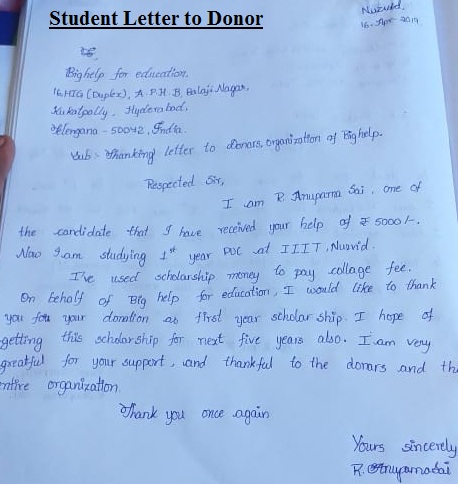 Student Letter to Donor
Nuzvid.
16-Apr-2019
To,
Bighelp for education,
16,MIG (Duplex), A.P.H.B, Balaji Nagar,
Kukatpally, Hyderabad,
Telengana - 50042, India.
Sub :- Thanking letter to donars, organization of Bighelp.
Respected Sir,
I am R. Anupama Sai, one of
the candidate that I have received your help of ₹ 5000/-.
Now I am studying 1st year PUC at IIIT, Nuzvid.
I've used scholarship money to pay collage fee.
On behalf of Big help for education, I would like to thank
you for your donation as first year scholarship. I hope of
getting this scholarship for next five years also. I am very
greatful for your support, and thankful to the donars and the
entire organization.
Thank you once again
Yours sincerely
R. Anupamasai